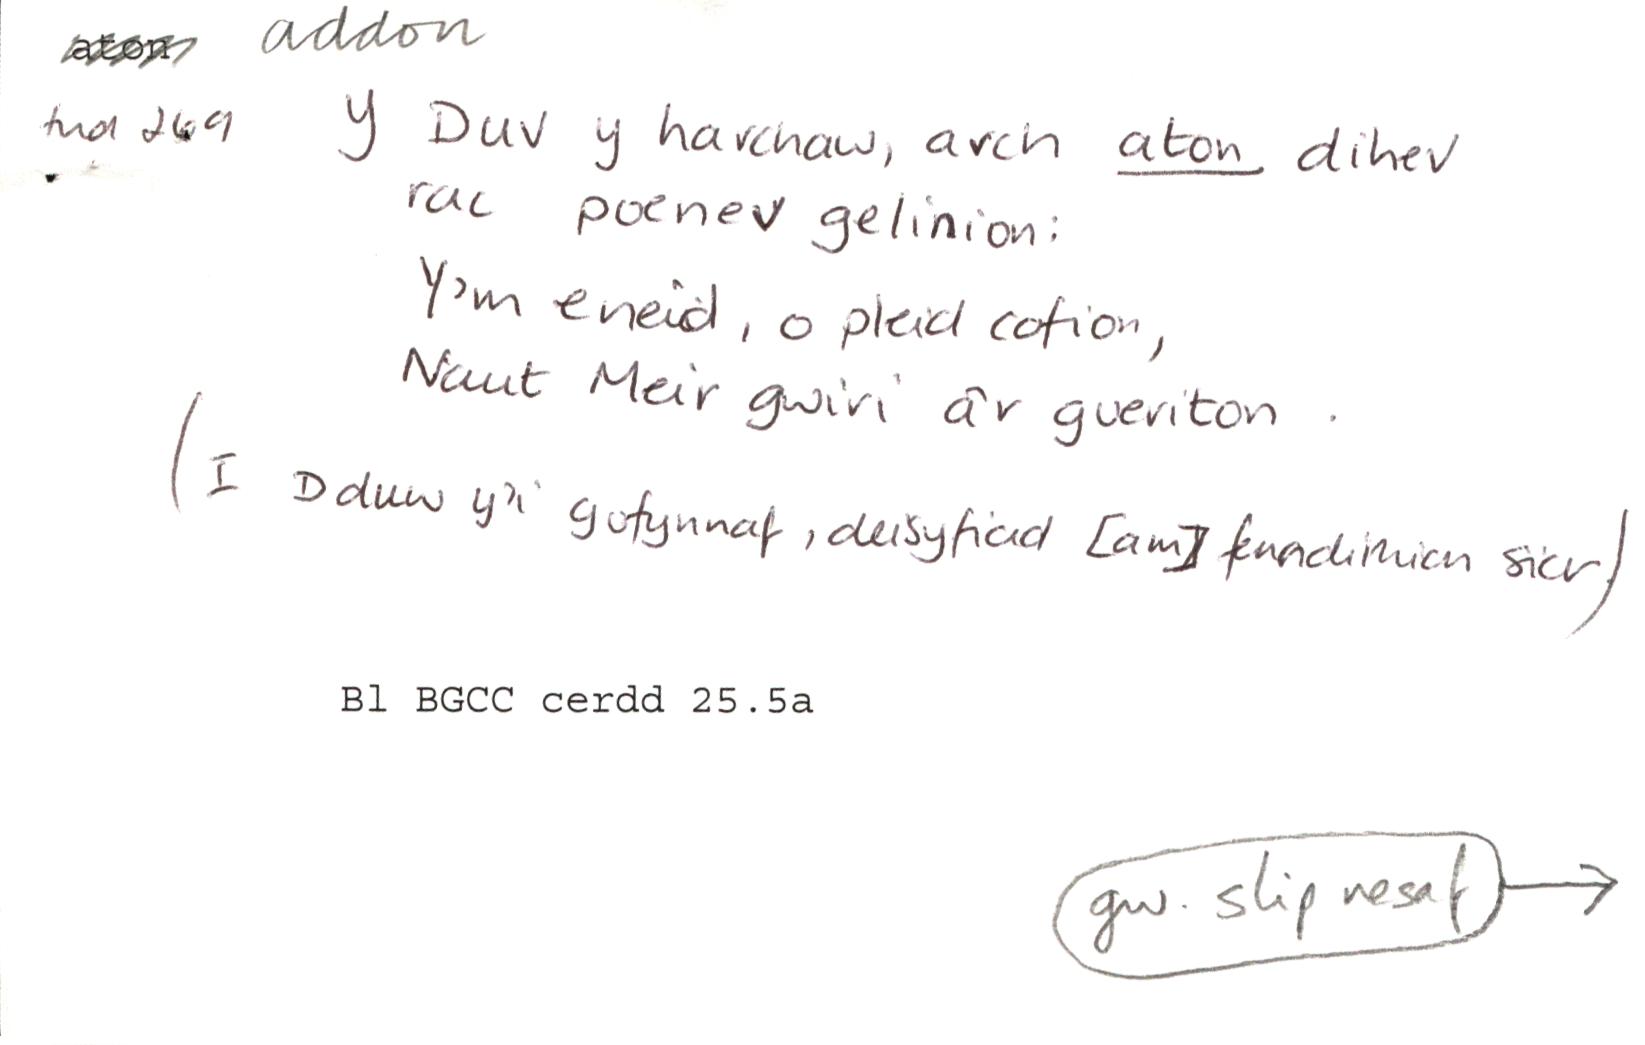 aton addon
tud 269 Y Duv y harchaw, arch aton dihev
rac poenev gelinion:
Y'm eneid, o pleid cofion,
Naut Meir gwiri a'r gueriton.
(I Dduw y'i gofynnaf, deisyfiad [am] sicr)
Bl BGCC cerdd 25.5a
gw. slip nesaf